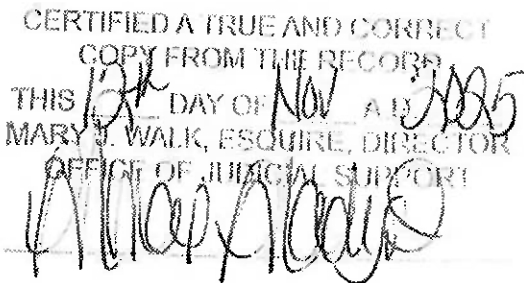 CERTIFIED A TRUE AND CORRECT
COPY FROM THE RECORD
THIS 12th DAY OF Nov A.D. 2025
MARY J. WALK, ESQUIRE, DIRECTOR
OFFICE OF JUDICIAL SUPPORT